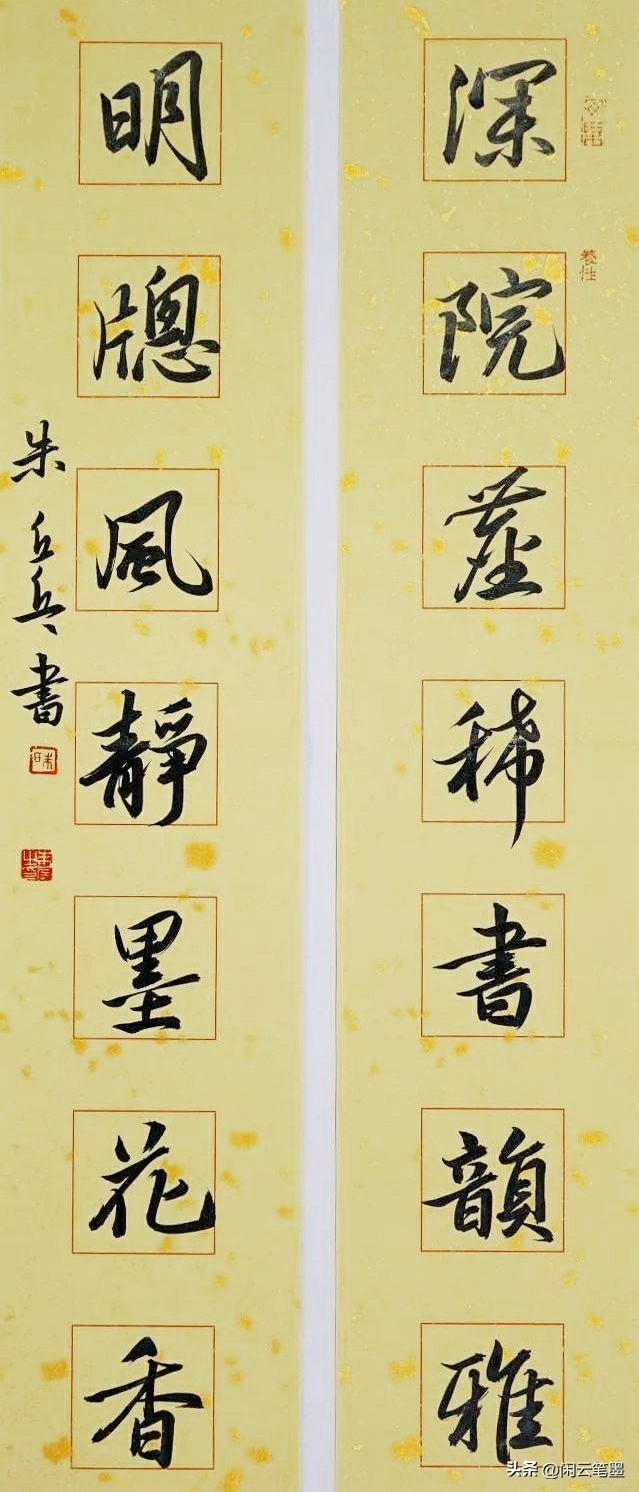 深院塵稀書韻雅
養性
明牕風靜墨花香
朱丘兵書
头条 @闲云笔墨